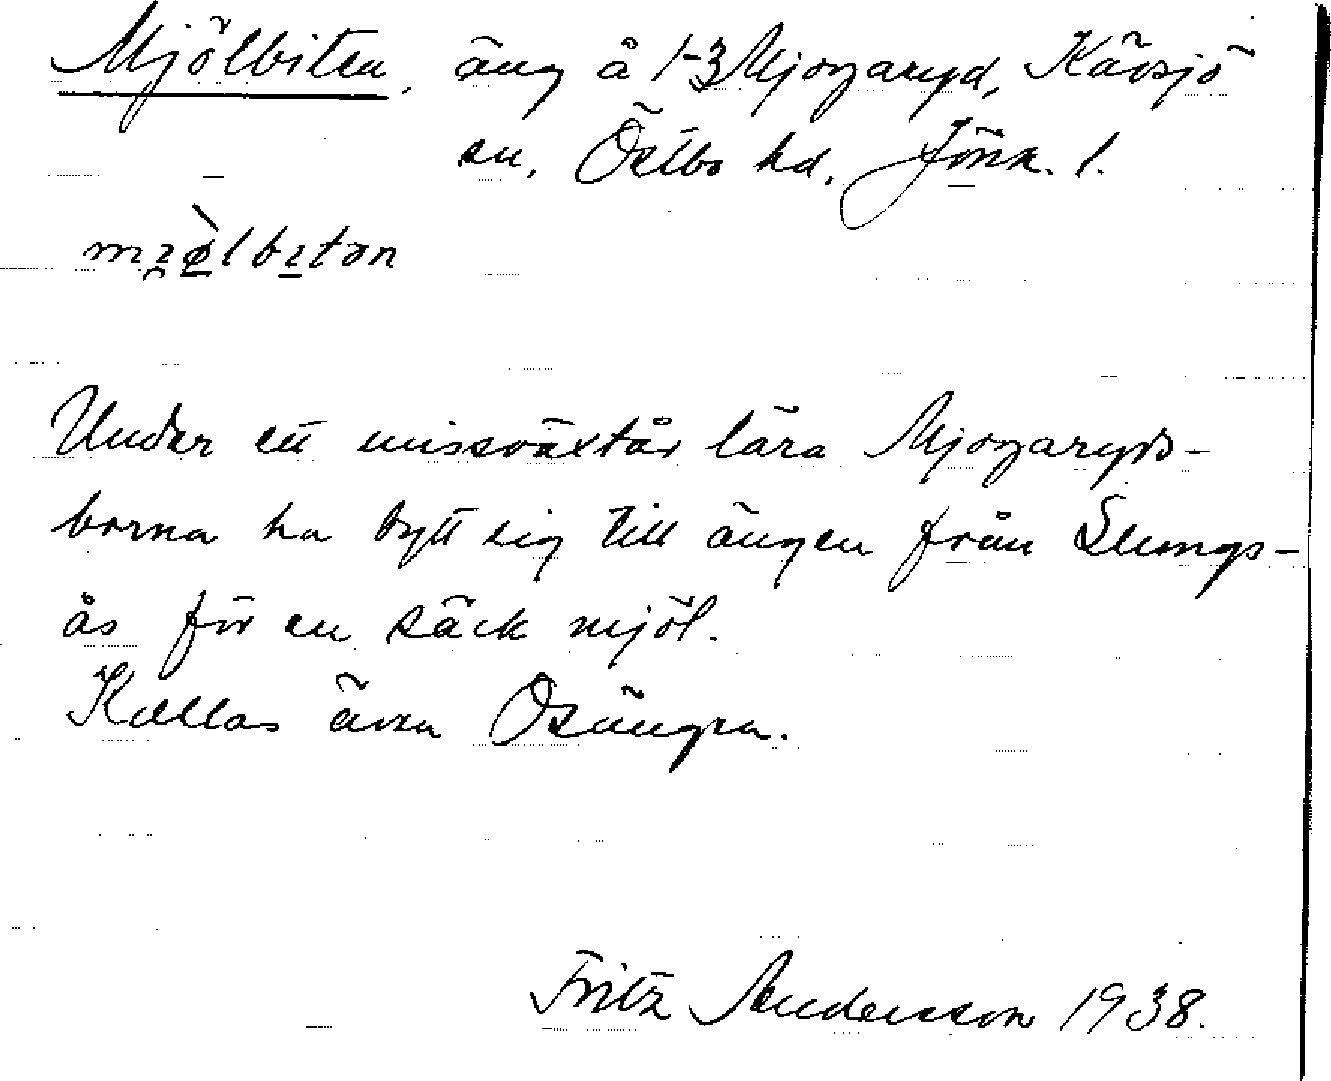 Mjölbiten, äng å 1-3 Mjogaryd, Kävsjö
sn, Östbo hd, Jönk. l.
Under ett missväxtår lära Mjogaryds-
borna ha bytt sig till ängen från Slungs-
ås för en säck mjöl.
Kallas även Osängen.
Fritz Andersson 1938.